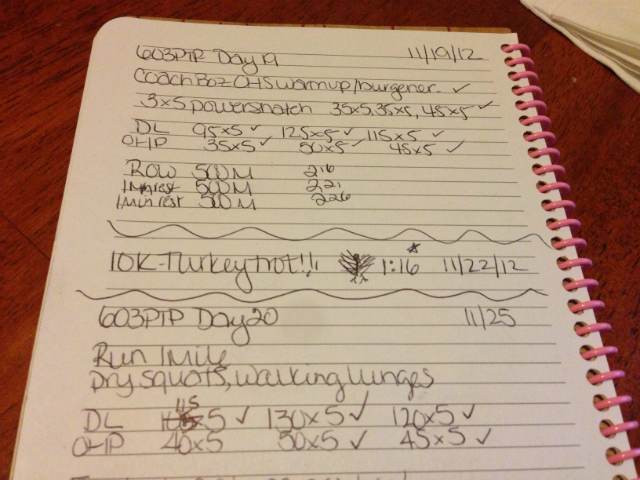 603PTP Day 19 11/19/12
Coach Boz CHS warmup/burgener ✓
3x5 powersnatch 35x5, 35x5, 45x5 ✓
DL 95x5 ✓ 125x5 ✓ 115x5 ✓
OHP 35x5 ✓ 50x5 ✓ 45x5 ✓
Row 500M 216
1min rest 500M 221
1min rest 500M 226
10K-Turkey Trot!!! 1:16* 11/22/12
603PTP Day 20 11/25
Run 1 Mile
Dry squats, walking lunges
DL 115x5 ✓ 130x5 ✓ 120x5 ✓
OHP 40x5 50x5 ✓ 45x5 ✓